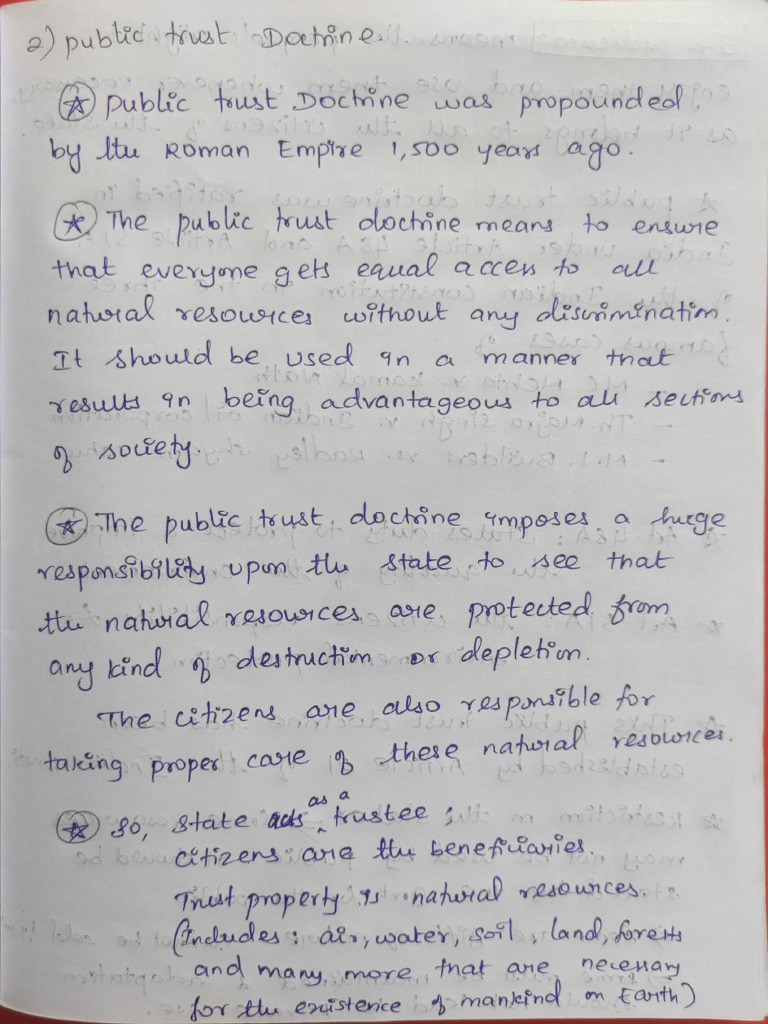 2) public trust Doctrine.
public trust Doctrine was propounded.
by the Roman Empire 1,500 years ago.
The public trust doctrine means to ensure
that everyone gets equal access to all
natural resources without any discrimination.
It should be used in a manner that
results in being advantageous to all sections
of society.
The public trust doctrine imposes a huge
responsibility upon the state to see that
the natural resources are protected from
any kind of destruction or depletion.
The citizens are also responsible for
taking proper care of these natural resources.
So, state acts as a trustee;
citizens are the beneficiaries.
Trust property is natural resources.
(Includes: air, water, soil, land, forests
and many more that are necessary
for the existence of mankind on Earth)